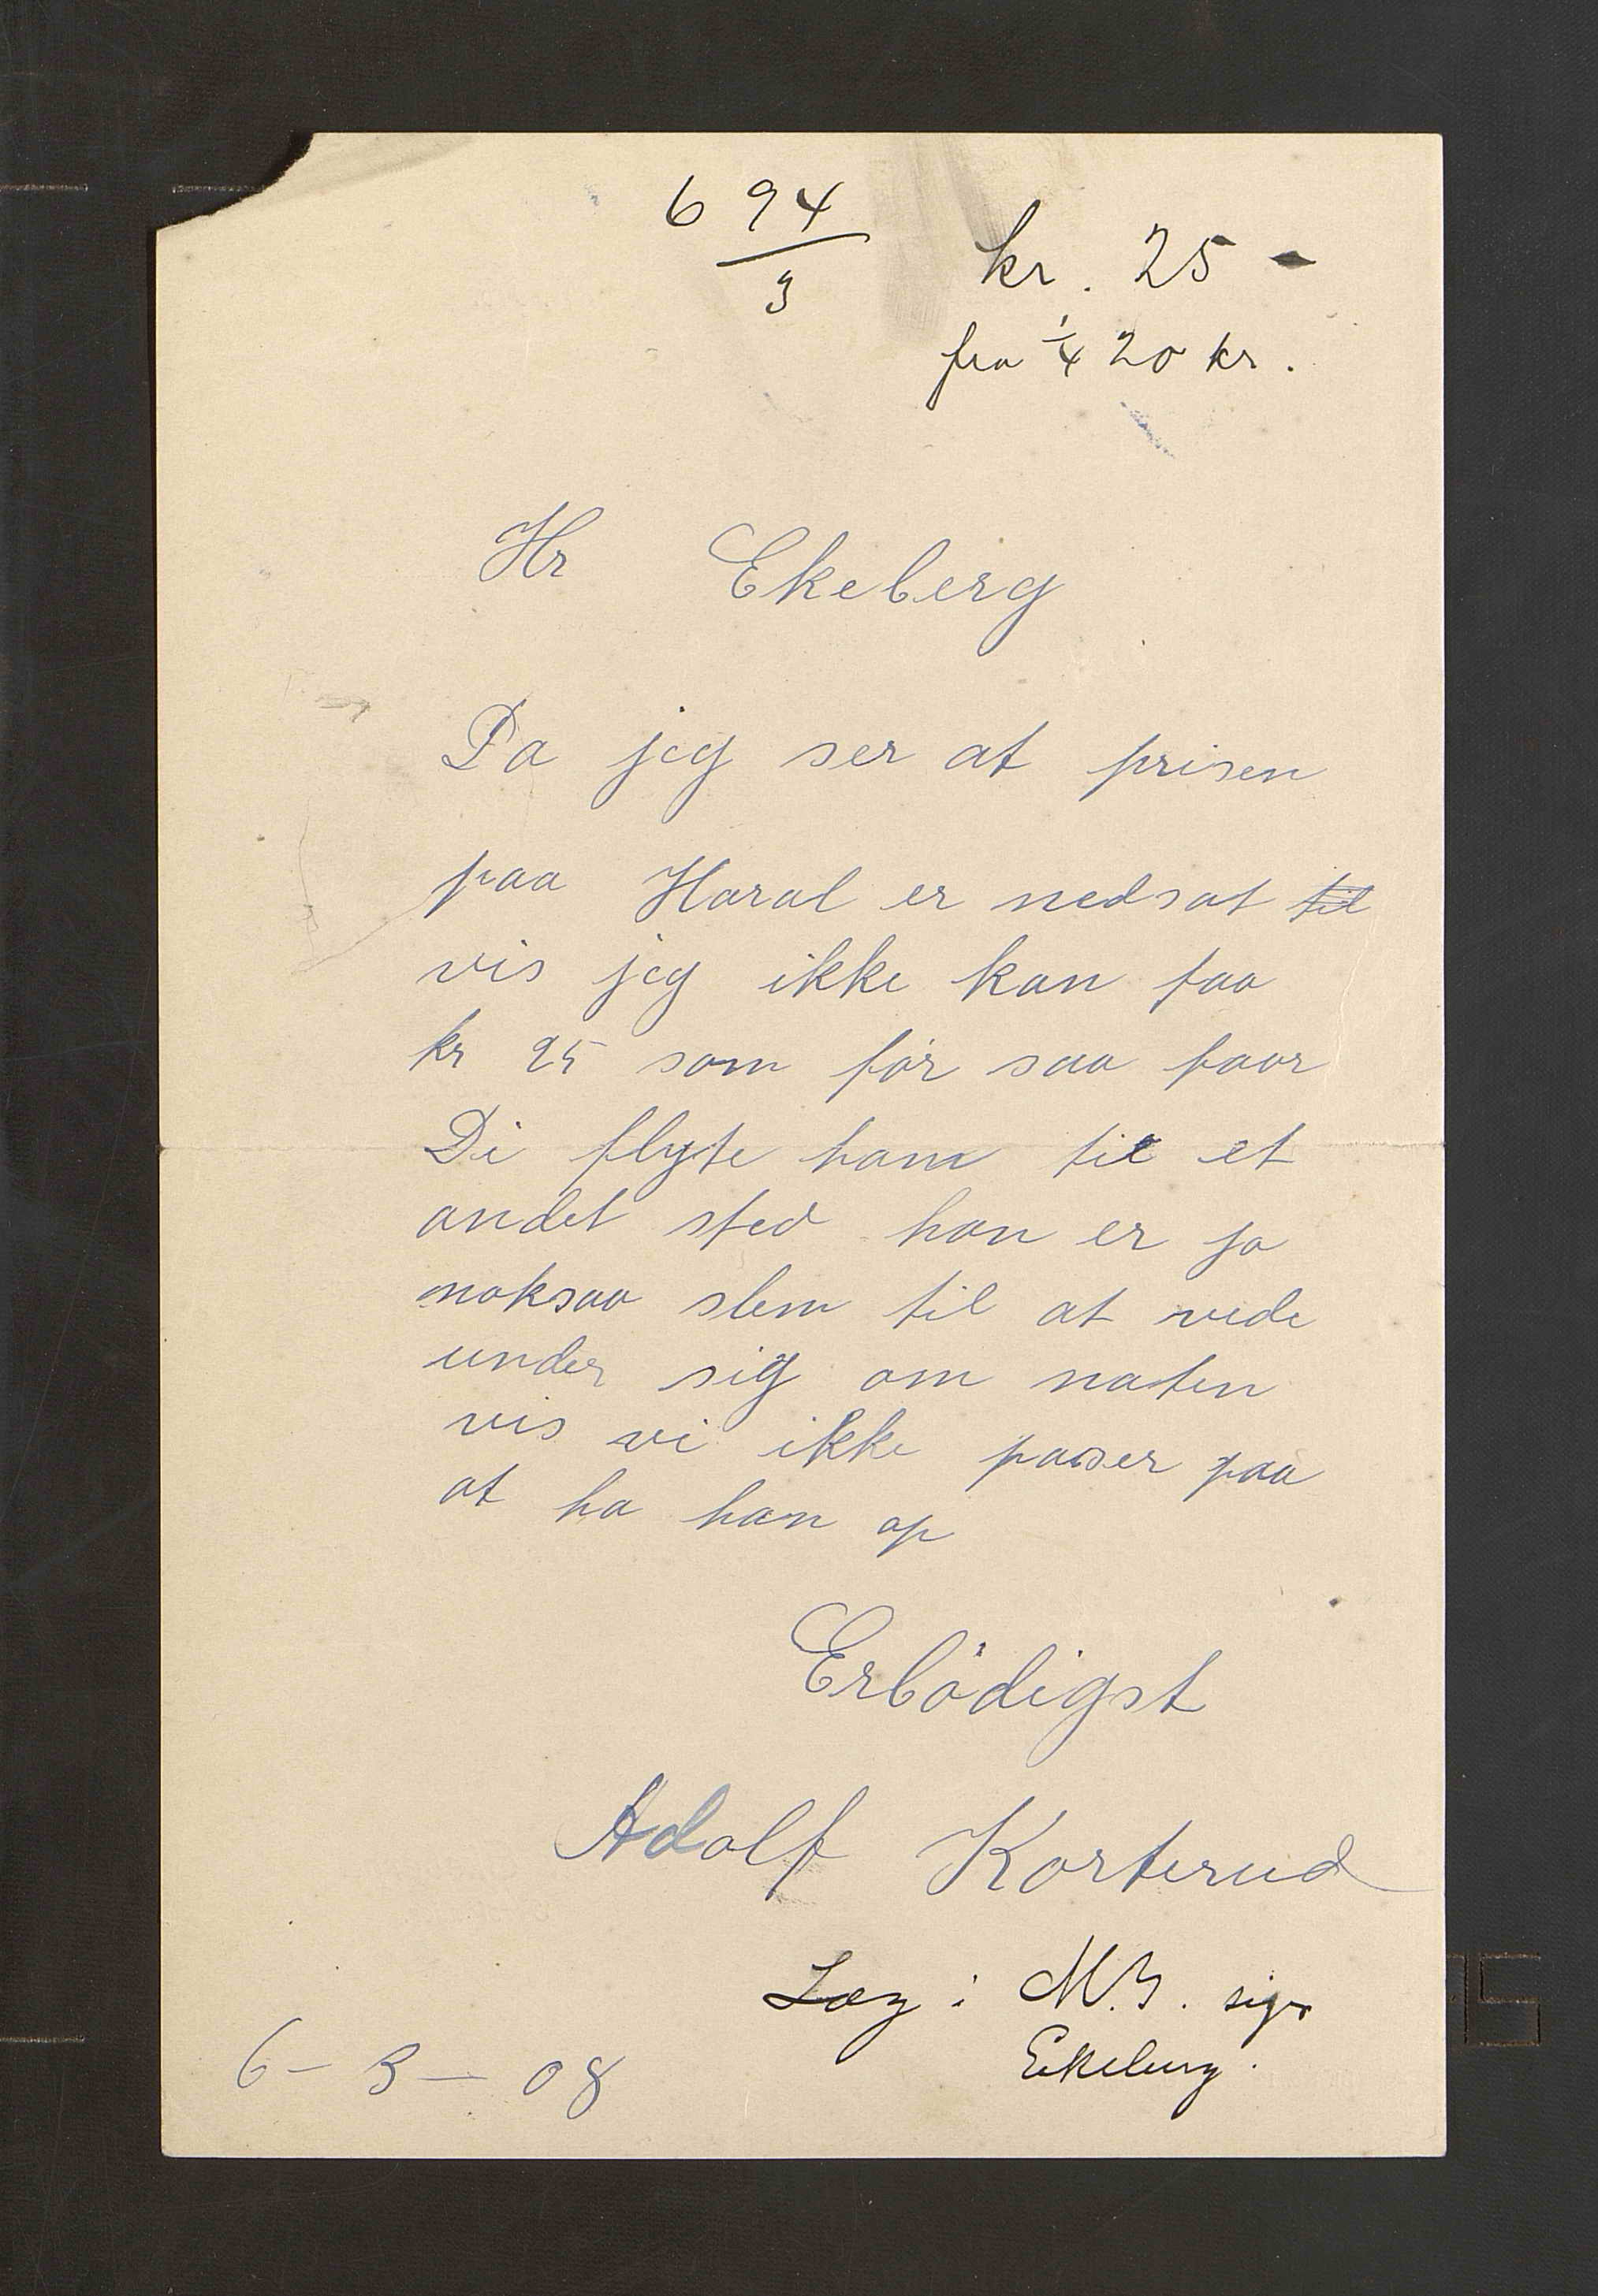 6 94/3
kr. 25 -
fra 1/4 20 kr.
Hr Ekeberg
Da jeg ser at prisen
paa Haral er nedsat til
vis jeg ikke kan faa
kr 25 som før saa faar
Di flyte ham til et
andet sted han er jo
noksaa slem til at vede
under sig om naten
vis vi ikke paser paa
at ha han op
Erbödigst
Adolf Korterud
Læg i M.3.
Ekeberg.
6-3-08